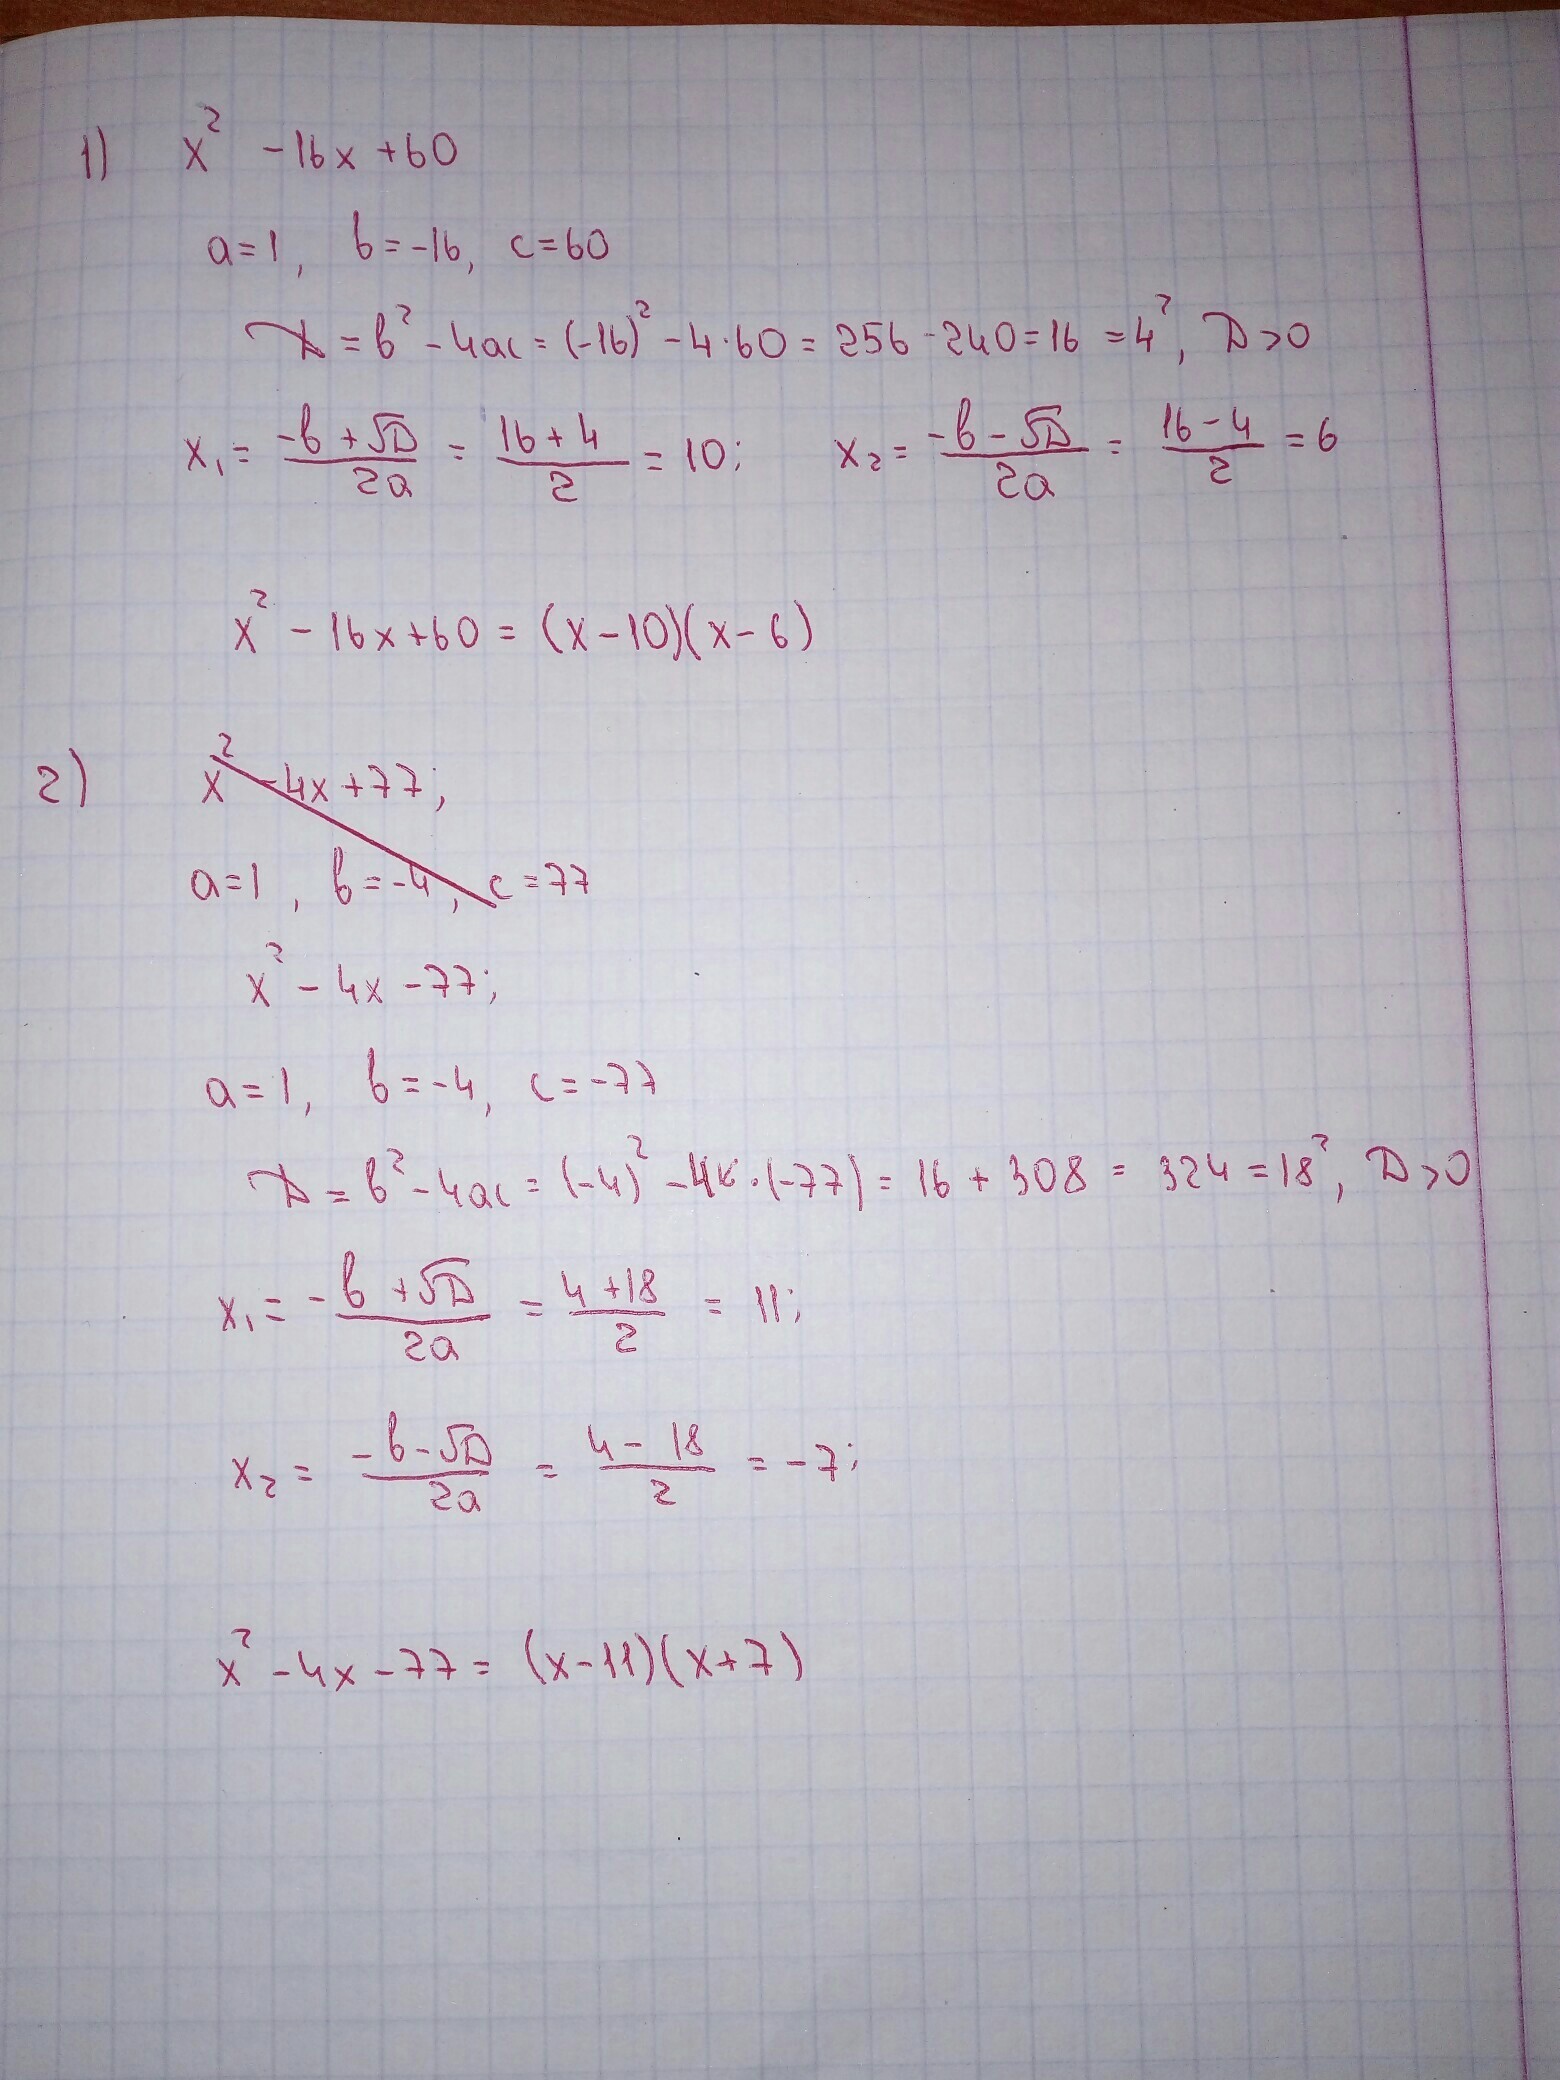 1) x² - 16x + 60
a=1, b=-16, c=60
D = b² - 4ac = (-16)² - 4·60 = 256 - 240 = 16 = 4², D>0
x₁ = (-b+√D)/2a = (16+4)/2 = 10; x₂ = (-b-√D)/2a = (16-4)/2 = 6
x² - 16x + 60 = (x-10)(x-6)
2) x² - 4x + 77;
a=1, b=-4, c=77
x² - 4x - 77;
a=1, b=-4, c=-77
D = b² - 4ac = (-4)² - 4·(-77) = 16 + 308 = 324 = 18², D>0
x₁ = (-b+√D)/2a = (4+18)/2 = 11;
x₂ = (-b-√D)/2a = (4-18)/2 = -7;
x² - 4x - 77 = (x-11)(x+7)